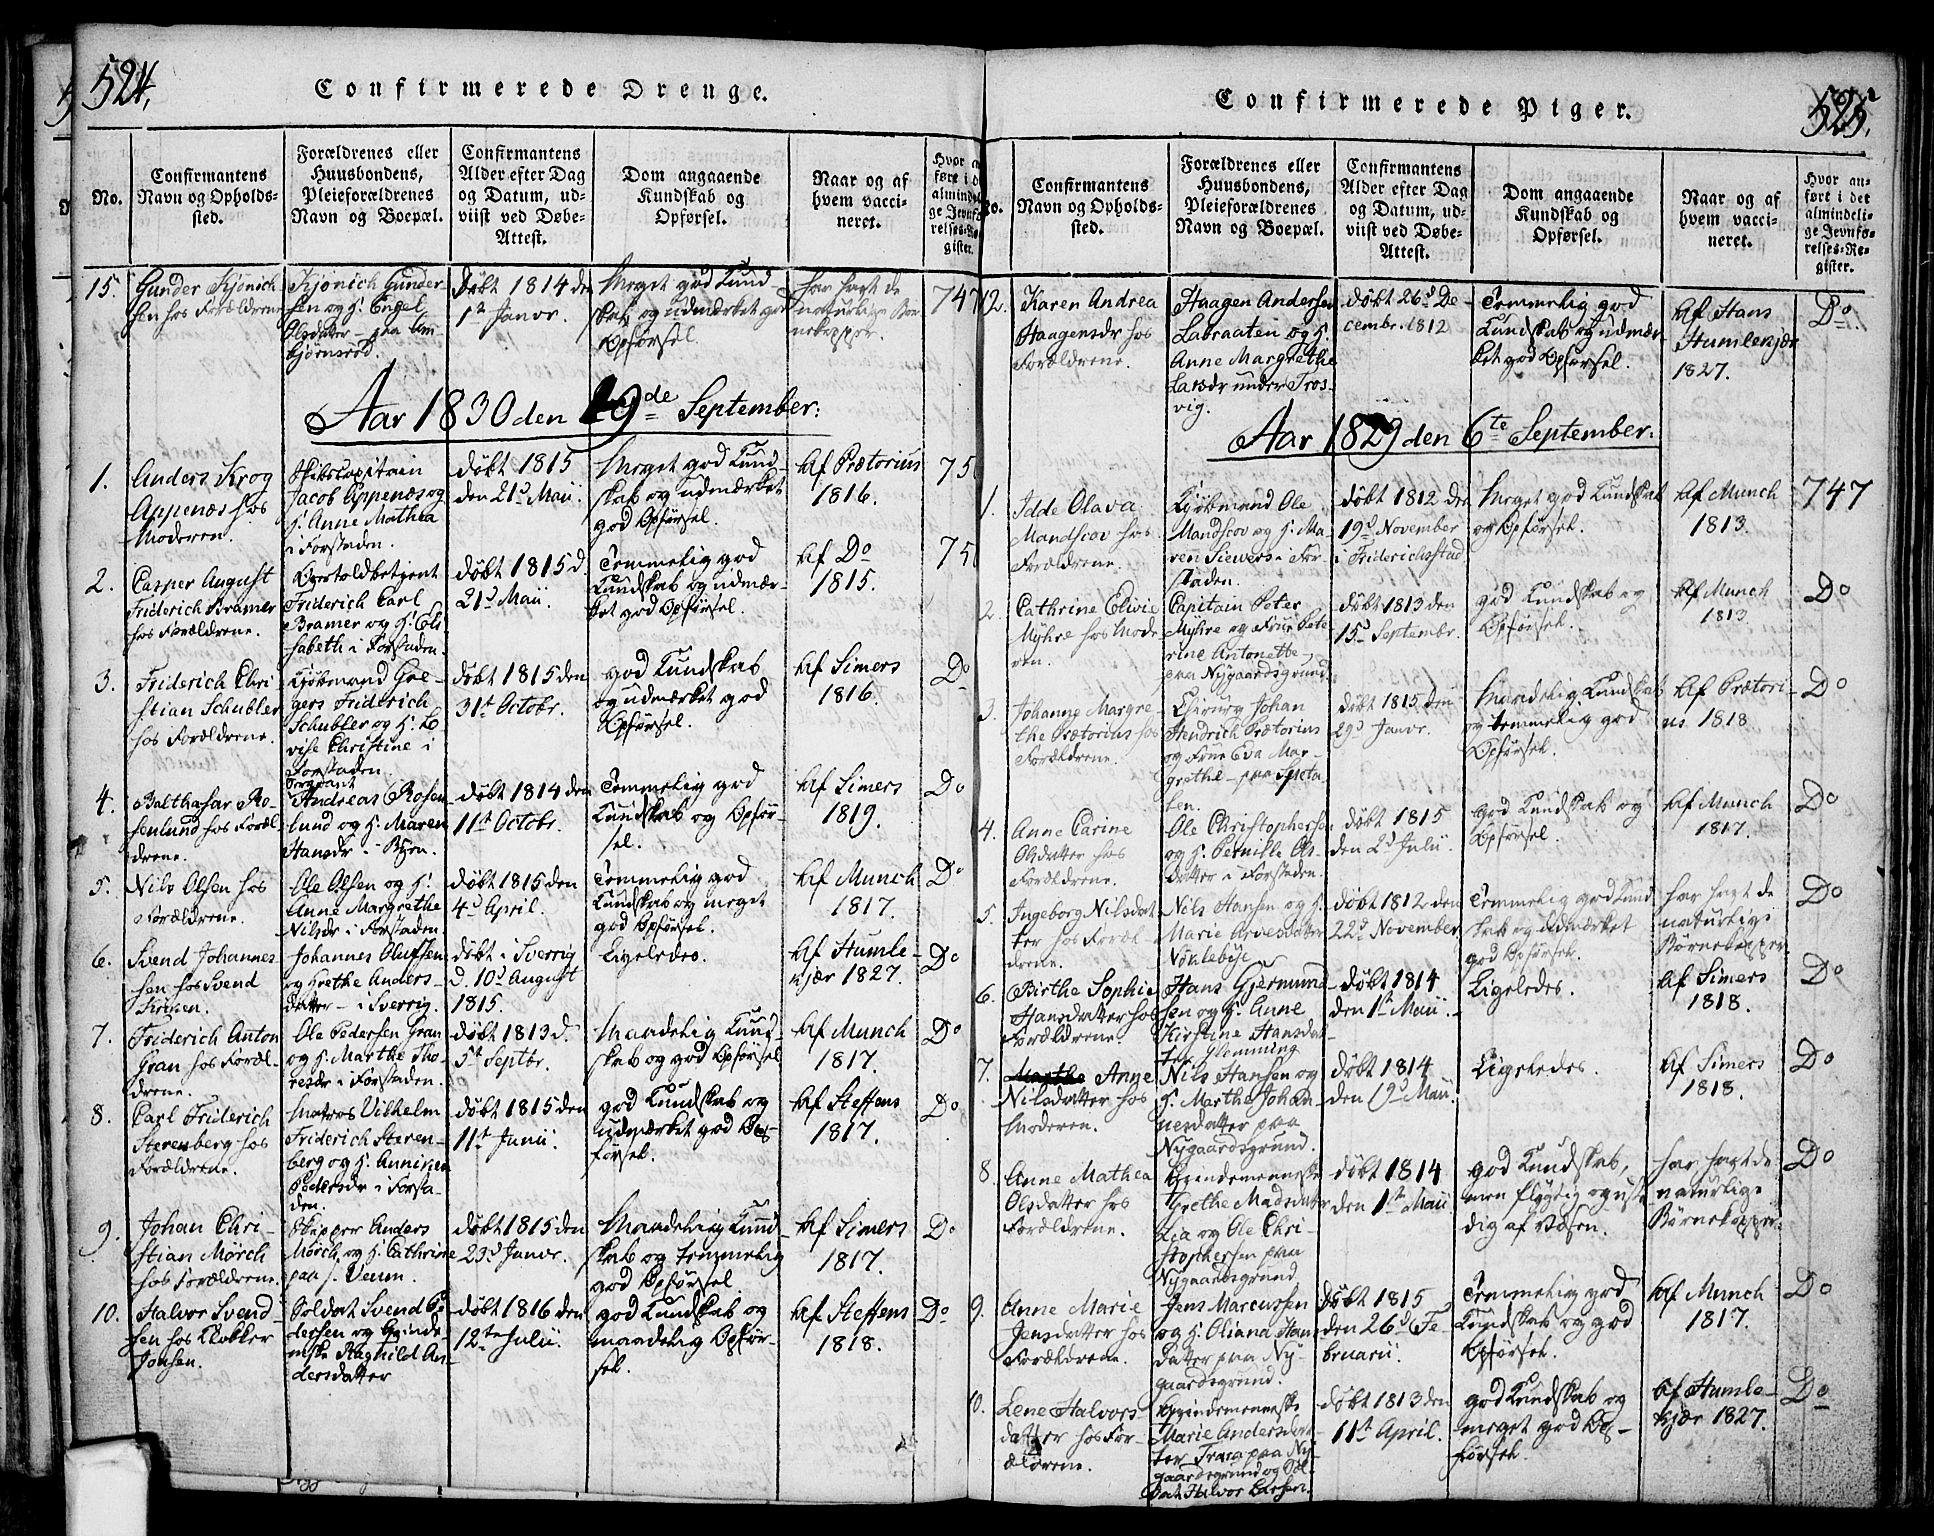 524.
Confirmerede Drenge.
No.
Confirmantens
Navn og Opholds-
sted.
Forældrenes eller
Huusbondens,
Pleieforældrenes
Navn og Boepæl.
Confirmantens
Alder efter Dag
og Datum, ud-
viist ved Døbe-
Attest.
Dom angaaende
Kundskab og
Opførsel.
Naar og af
hvem vacci-
neret.
15.
Gunder Kjönich
sen hos Forældrene
Kjönich Gunder
sen og H. Engel
Olsdatter - paa
Bjørnerød.
døbt 1814 den
1te Janvr.
Meget god Kund-
skab og udmærket god
Opførsel.
har havt de
naturlige Bør
nekopper.
747
Aar 1830 den 19de September:
1.
Anders Krog
Appenæs hos
Moderen.
Skibscapitain
Jacob Appenæs og
H. Anne Mathea
i Forstaden.
døbt 1815
den 21d Maii.
Meget god Kund
skab og udmærket
god Opførsel.
Af Prætorius
1816.
75
2.
Casper August
Friderich Bramer
hos Forældrene.
Overtoldbetjent
Friderich Carl
Bramer og H. Eli
sabeth i Forstaden.
døbt 1815 d.
21d Maii.
Temmelig god
Kundskab og udmær-
ket god Opførsel.
Af Do
1815.
75
3.
Friderich Chri
stian Schubler
hos Forældrene.
Kjøbmand Gre-
gers Friderich
Schubler og H. Lo
vise Christine i
Forstaden.
døbt 1815 den
31te Octobr.
god Kundskab
og udmærket god
Opførsel.
Af Simers
1816.
Do
4.
Balthasar Ro-
senlund hos Foræl
drene.
Sergeant
Andreas Rosen
lund og H. Maren
Hansdr i Byen.
døbt 1814 den
11te Octobr.
Temmelig god
Kundskab og Opfør-
sel.
Af Simers
1819.
Do
5.
Nils Olsen hos
Forældrene.
Ole Olsen og H.
Anne Margrethe
Nilsdr i Forstaden
døbt 1815 den
4d April.
Temmelig god
Kundskab og meget
god Opførsel.
Af Munch
1817.
Do
6.
Svend Johannes
sen hos Svend
Johannes Olufsen
og Grethe Anders
datter - i Sverrig.
døbt i Sverrig
d. 10d August
1815.
Ligeledes.
Af Humle-
kjær 1827.
Do
7.
Friderich Anton
Gran hos Foræl-
drene.
Ole Pedersen Gran
og H. Marthe Tho
resdr i Forstaden.
døbt 1813 d.
5te Septbr.
Maadelig Kund
skab og god Opførsel
Af Munch
1817.
Do
8.
Carl Friderich
Sterenberg hos
Forældrene.
Matros Vilhelm
Friderich Steren-
berg og H. Anniken
Pedersdr i Forsta-
den.
døbt 1815 den
11te Junii.
god Kundskab og
udmærket god Op-
førsel.
Af Steffens
1817.
Do
9.
Johan Chri-
stian Mörch
hos Forældrene.
Skipper Anders
Mörch og H. Cathrine
paa Veum.
døbt 1815 den
23d Janvr.
Maadelig Kund
skab og temmelig
god Opførsel
Af Simers
1817.
Do
10.
Halvor Svend-
sen hos Klokker
Jonsen.
Soldat Svend Pe
dersen og Qvinde
mske Raghild An
dersdatter
døbt 1816 den
12te Julii.
god Kundskab og
maadelig Opfør-
sel.
Af Steffens
1818.
Do
525.
Confirmerede Piger.
Confirmantens
Navn og Opholds-
sted.
Forældrenes eller
Huusbondens,
Pleieforældrenes
Navn og Boepæl.
Confirmantens
Alder efter Dag
og Datum, ud-
viist ved Døbe-
Attest.
Dom angaaende
Kundskab og
Opførsel.
Naar og af
hvem vacci-
neret.
Hvor an-
ført i det
almindeli-
ge Jevnfø-
relses-Re-
gister.
12.
Karen Andrea
Haagensdr hos
Forældrene.
Haagen Andersen
Labraaten og H.
Anne Margrethe
Larsdr under Tros-
vig.
døbt 26d De-
cembr. 1812
Temmelig god
Kundskab og udmær-
ket god Opførsel.
Af Hans
Humlekjær
1827.
Do.
Aar 1829 den 6te September:
1.
Idde Olava
Mandscov hos
Forældrene.
Kjøbmand Ole
Mandscov og H. Ma-
ren Siewers i For-
staden.
døbt 1812 den
19d November
i Friderichsstad
Meget god Kundskab
og Opførsel.
Af Munch
1813.
747
2.
Cathrine Elivie
Myhre hos Mode
ren.
Capitain Peter
Myhre og Frue Pete
rine Antonette
paa Nygaardsgrund
døbt 1813 den
15d Septembr.
god Kundskab og
Opførsel.
Af Munch
1813
Do
3.
Johanne Margre
the Prætorius hos
Forældrene.
Chirurg Johan
Hendrich Prætorius
og Frue Eva Mar-
grethe - paa Slota-
ten.
døbt 1815 den
29d Janvr.
Maadelig Kundskab
og temmelig god
Opførsel.
Af Prætori-
us 1818
Do
4.
Anne Carine
Olsdatter hos
Forældrene.
Ole Christophersen
og H. Pernille Ols-
datter i Forstaden.
døbt 1815
den 2d Julii.
god Kundskab og
Opførsel.
Af Munch
1817.
Do
5.
Ingeborg Nilsdat
ter hos Foræl-
drene.
Nils Hansen og H.
Marie Arvesdatter
Nøklebye.
døbt 1812 den
22d November
Temmelig god Kund
skab og udmærket
god Opførsel.
har havt de
naturlige
Børnekopper.
Do
6.
Birthe Sophie
Hansdatter hos
Forældrene.
Hans Gjermund
sen og H. Anne
Kirstine Hansdat-
ter Glemming
døbt 1814
den 1te Maii.
Ligeledes.
Af Simers
1818.
Do
7.
Marthe Anne
Nilsdatter hos
Moderen.
Nils Hansen og
H. Marthe Johan
nesdatter paa
Nygaardsgrund.
døbt 1814
den 19d Maii.
Ligeledes.
Af Simers
1818.
Do
8.
Anne Mathea
Olsdatter hos
Forældrene.
Qvindemenneske
Grethe Madsdatter
Lia og Ole Chri-
stophersen paa
Nygaardsgrund
døbt 1814
den 1te Maii
god Kundskab,
men flygtig og ustæ
dig af Væsen.
har havt de
naturlige
Børnekopper.
Do
9.
Anne Marie
Jensdatter hos
Forældrene.
Jens Marcussen
og H. Oliana Hans
datter paa Ny-
gaardsgrund.
døbt 1815
den 26d Fe-
bruarii.
Temmelig god
Kundskab og god
Opførsel.
Af Munch
1817.
Do
10.
Lene Halvors-
datter hos For-
ældrene.
Qvindemenneske
Marie Andersdat-
ter Trara paa Ny-
gaardsgrund og Sol-
dat Halvor Larsen.
døbt 1813 den
11te April.
god Kundskab og
meget god Op-
førsel.
Af Humle-
kjær 1827.
Do